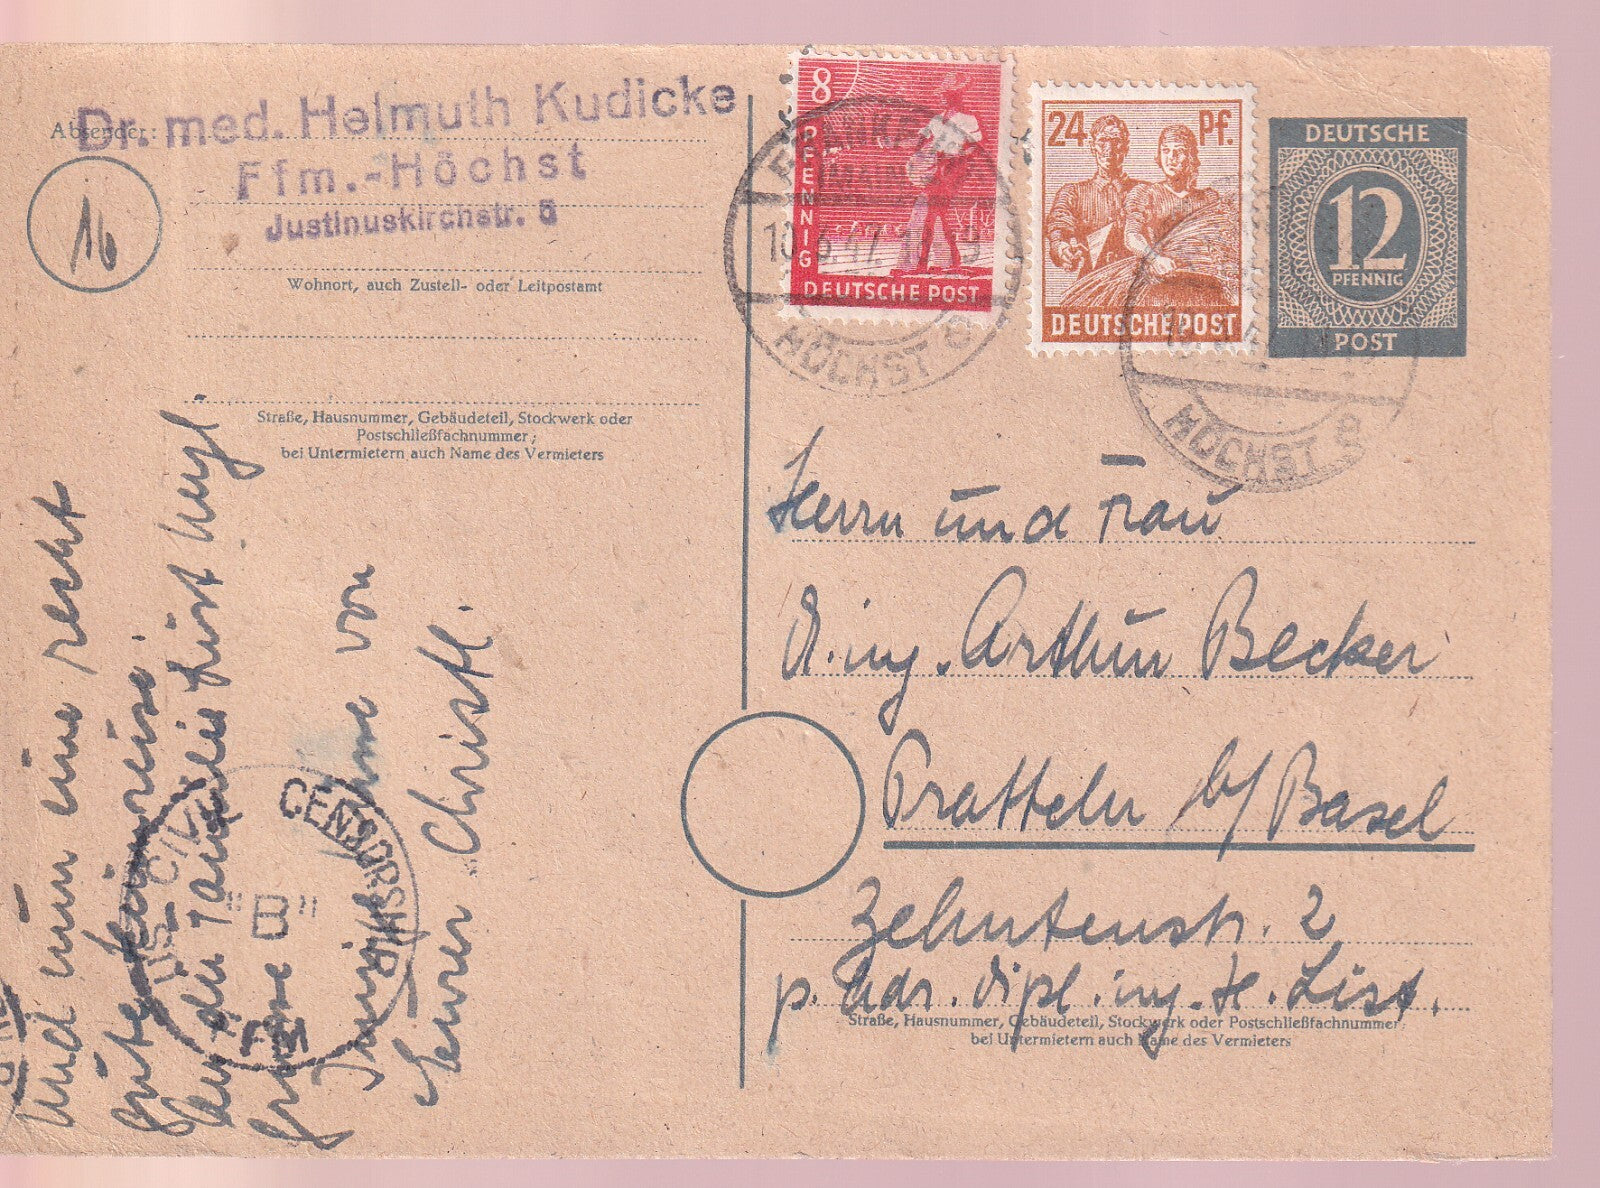 Dr. med. Helmuth Kudicke
Ffm.-Höchst
Justinuskirchstr. 5
Absender:
16
Wohnort, auch Zustell- oder Leitpostamt
Straße, Hausnummer, Gebäudeteil, Stockwerk oder
Postschließfachnummer;
bei Untermietern auch Name des Vermieters
8
PFENNIG
DEUTSCHE POST
24 Pf.
DEUTSCHE POST
DEUTSCHE
12
PFENNIG
POST
FRANKFURT
10.6.47
HÖCHST
HÖCHST
Herrn und Frau
Arthur Becker
Pratteln b/Basel
Zehntenstr. 2
p. Adr. Dipl. ing. H. List.
Straße, Hausnummer, Gebäudeteil, Stockwerk oder Postschließfachnummer;
bei Untermietern auch Name des Vermieters
Und nun eine recht
gute Heimreise.
Grüsse
von
Eurer Christl.
U.S. CIVIL CENSORSHIP
FFM